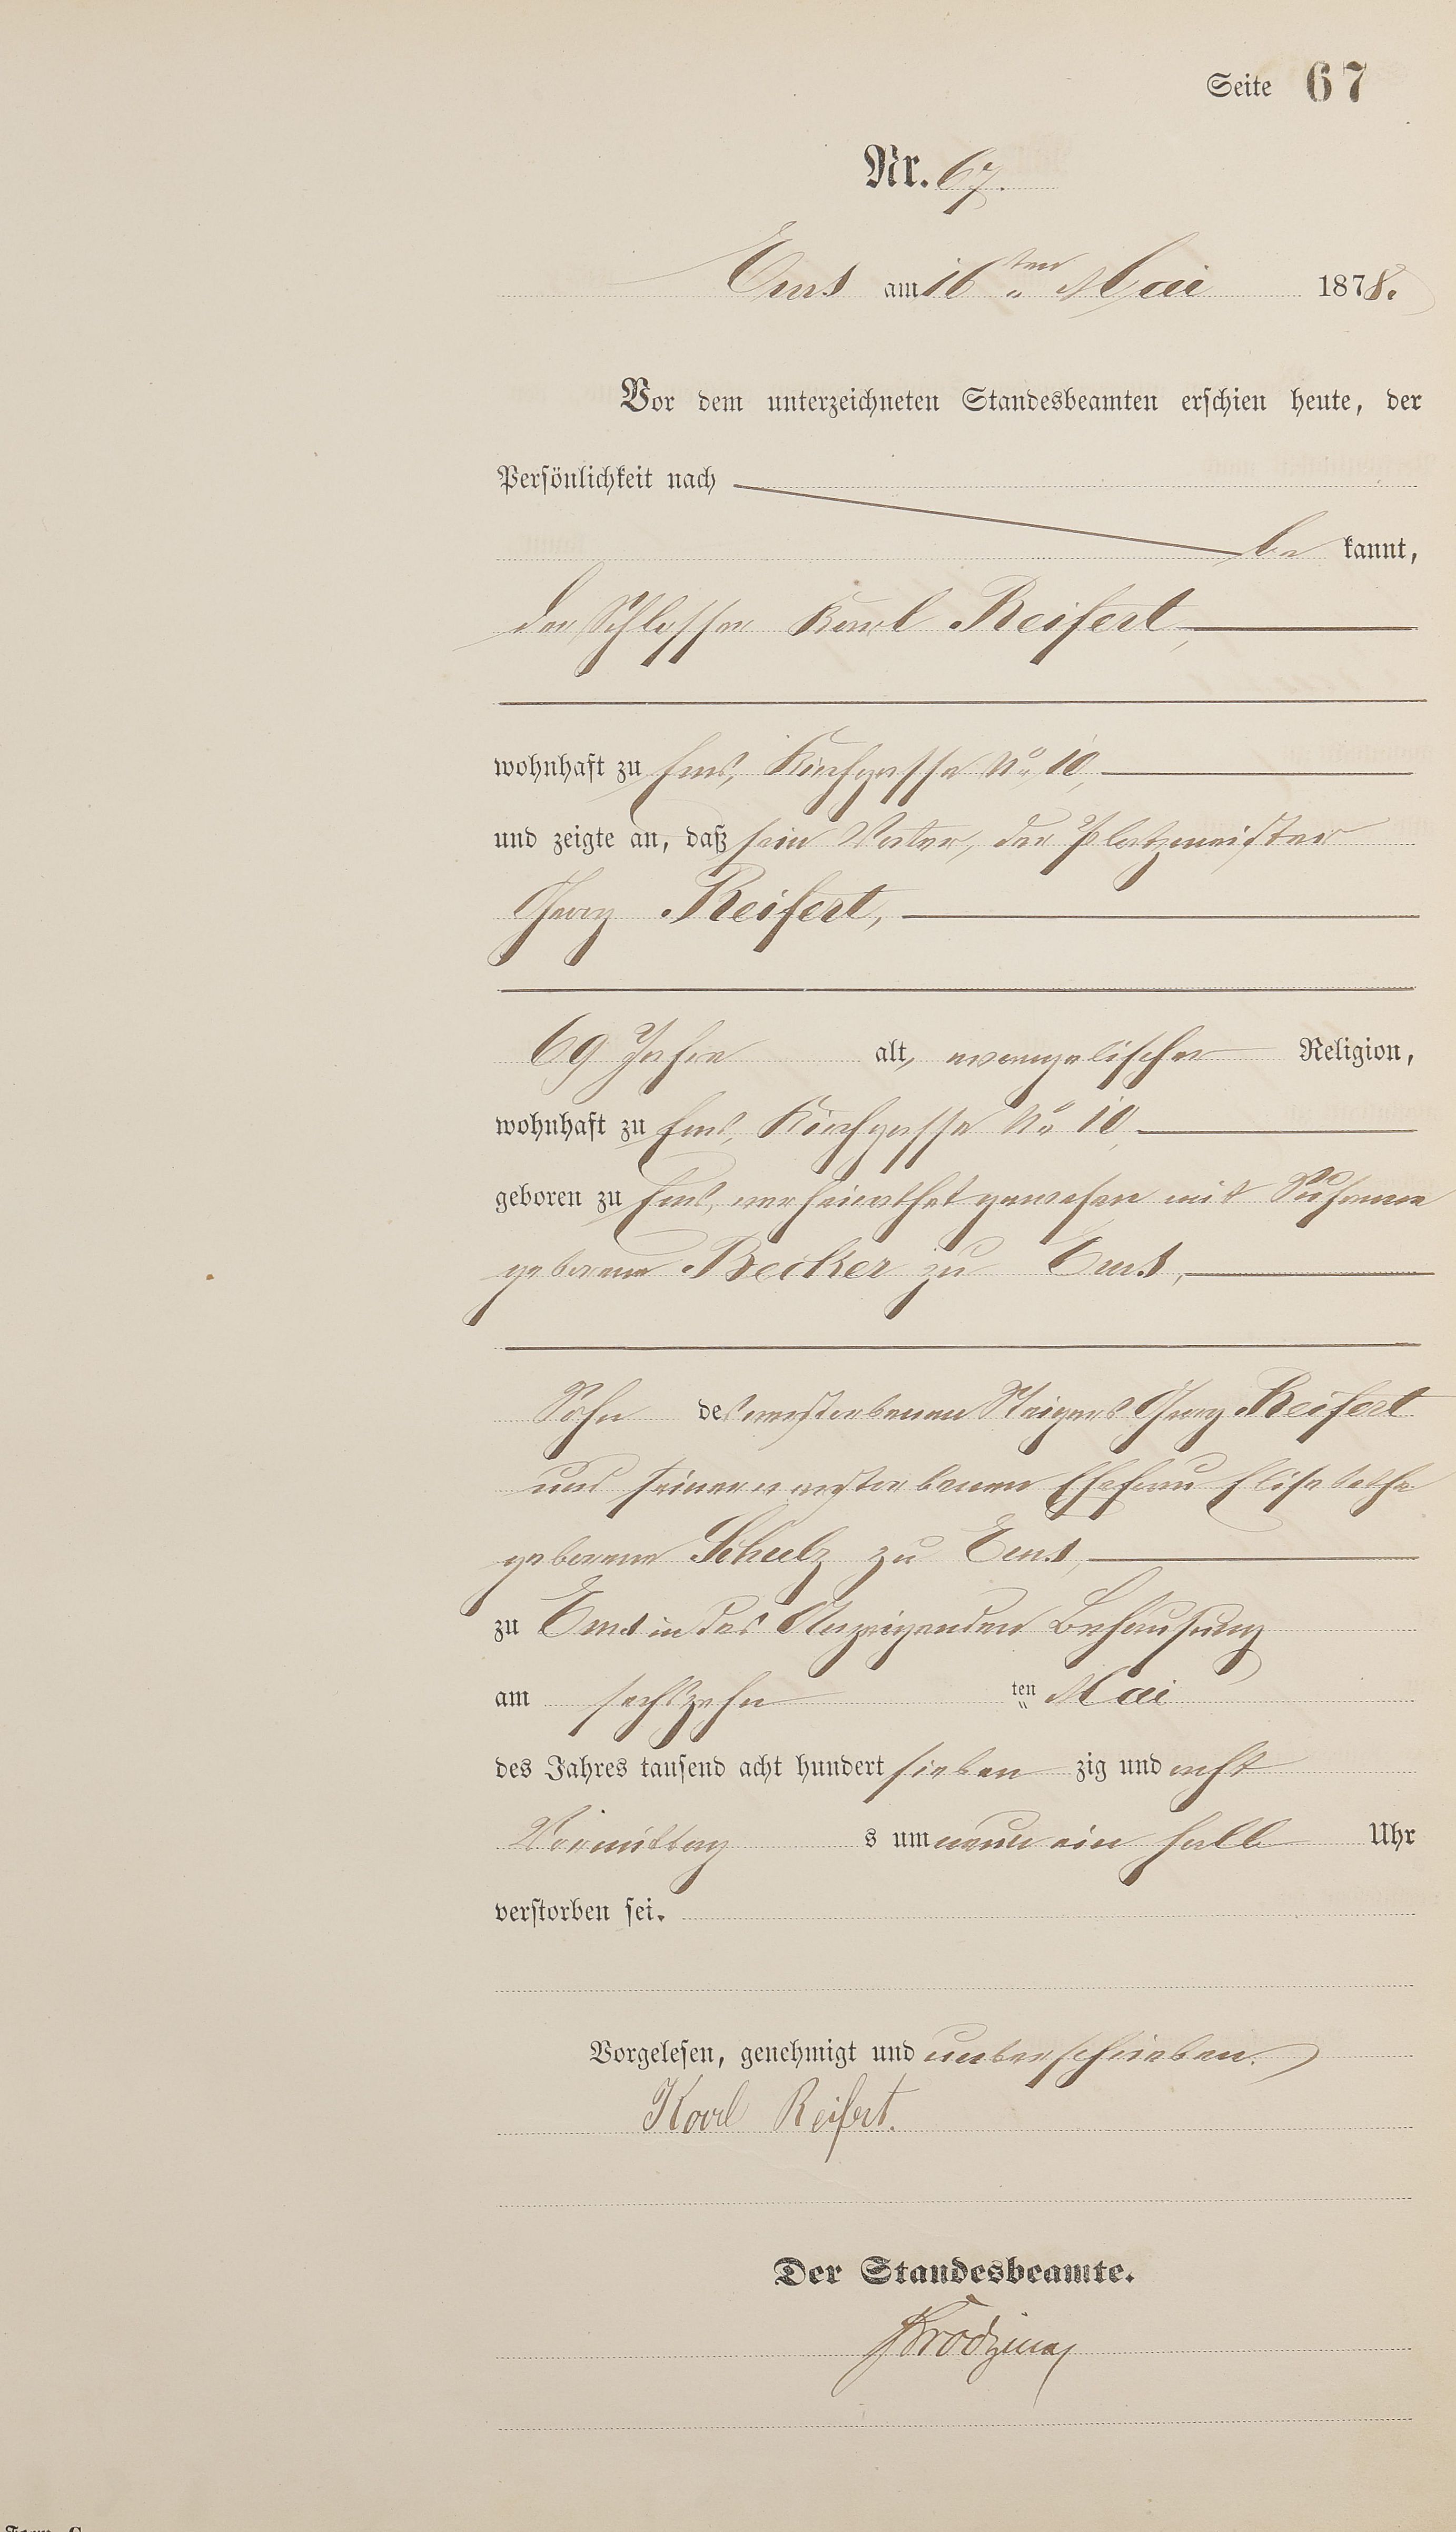 Seite 67
Nr. 67.
Ems am 16ten Mai 1878.
Vor dem unterzeichneten Standesbeamten erschien heute, der
Persönlichkeit nach
be kannt,
der Schlosser Karl Reifert,
wohnhaft zu Ems, Kirchgasse No 10,
und zeigte an, daß sein Vater, der Platzmeister
Georg Reifert,
69 Jahre alt, evangelischer Religion,
wohnhaft zu Ems, Kirchgasse No 10,
geboren zu Ems, verheirathet gewesen mit Susanna
geborene Becker zu Ems,
Sohn des verstorbenen Steigers Georg Reifert
und seiner verstorbenen Ehefrau Elisabethe
geborene Schulz zu Ems,
zu Ems in des Anzeigenden Behausung
am sechszehn ten Mai
des Jahres tausend acht hundert sieben zig und acht
Vormittag s um neun ein halb Uhr
verstorben sei.
Vorgelesen, genehmigt und unterschrieben.
Karl Reifert.
Der Standesbeamte.